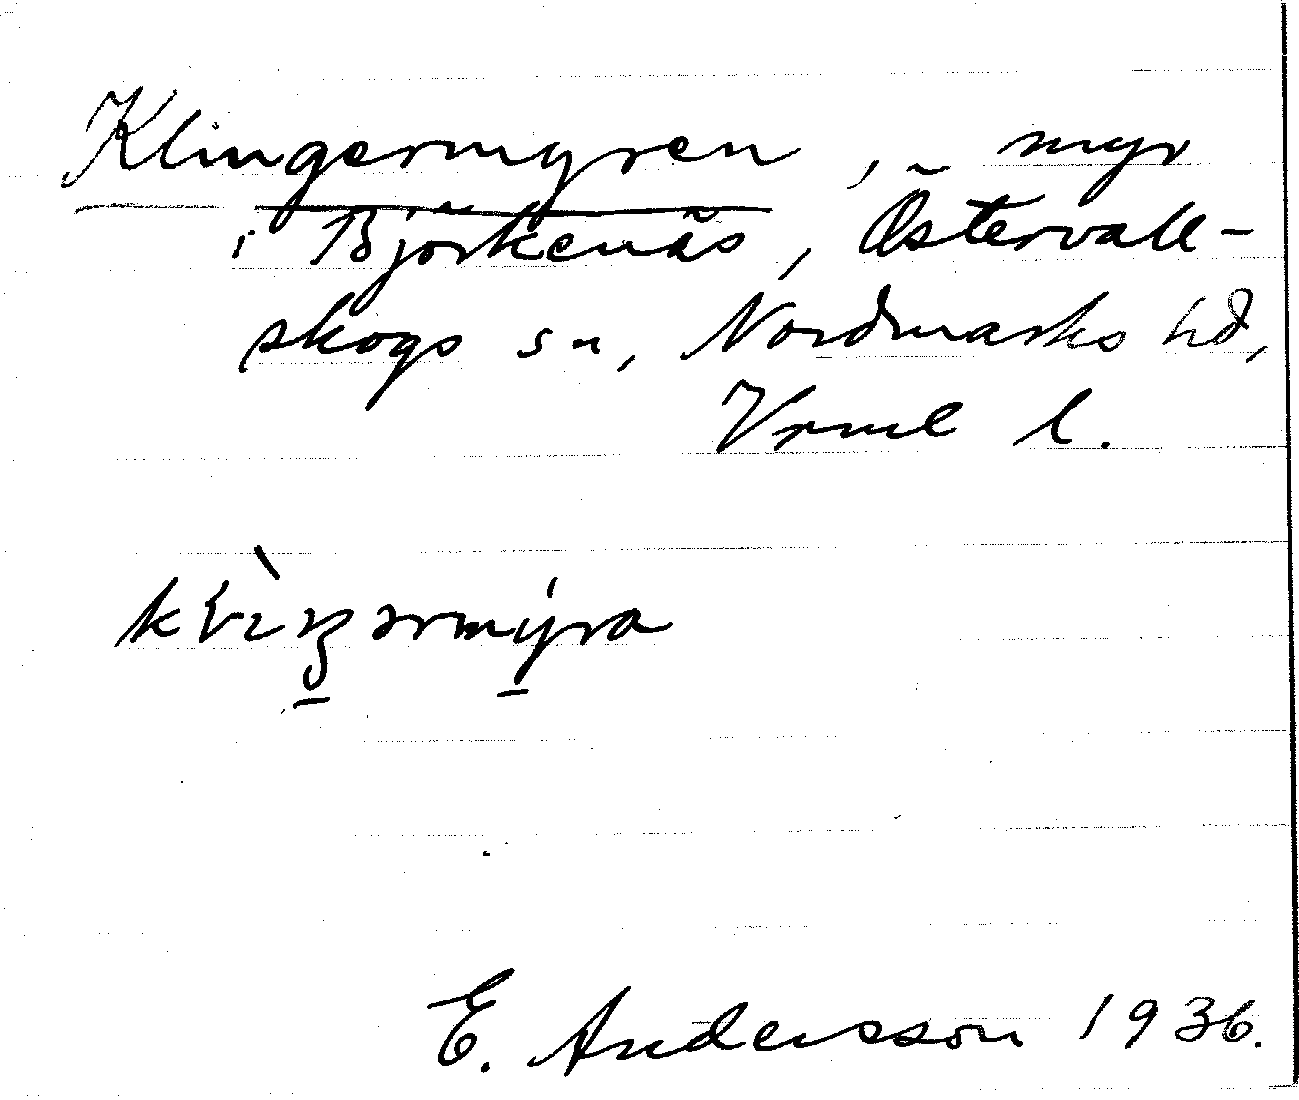 Klingermyren, myr
i Björkenäs, Östervall-
skogs sn, Nordmarks hd,
Vrml l.
E. Andersson 1936.